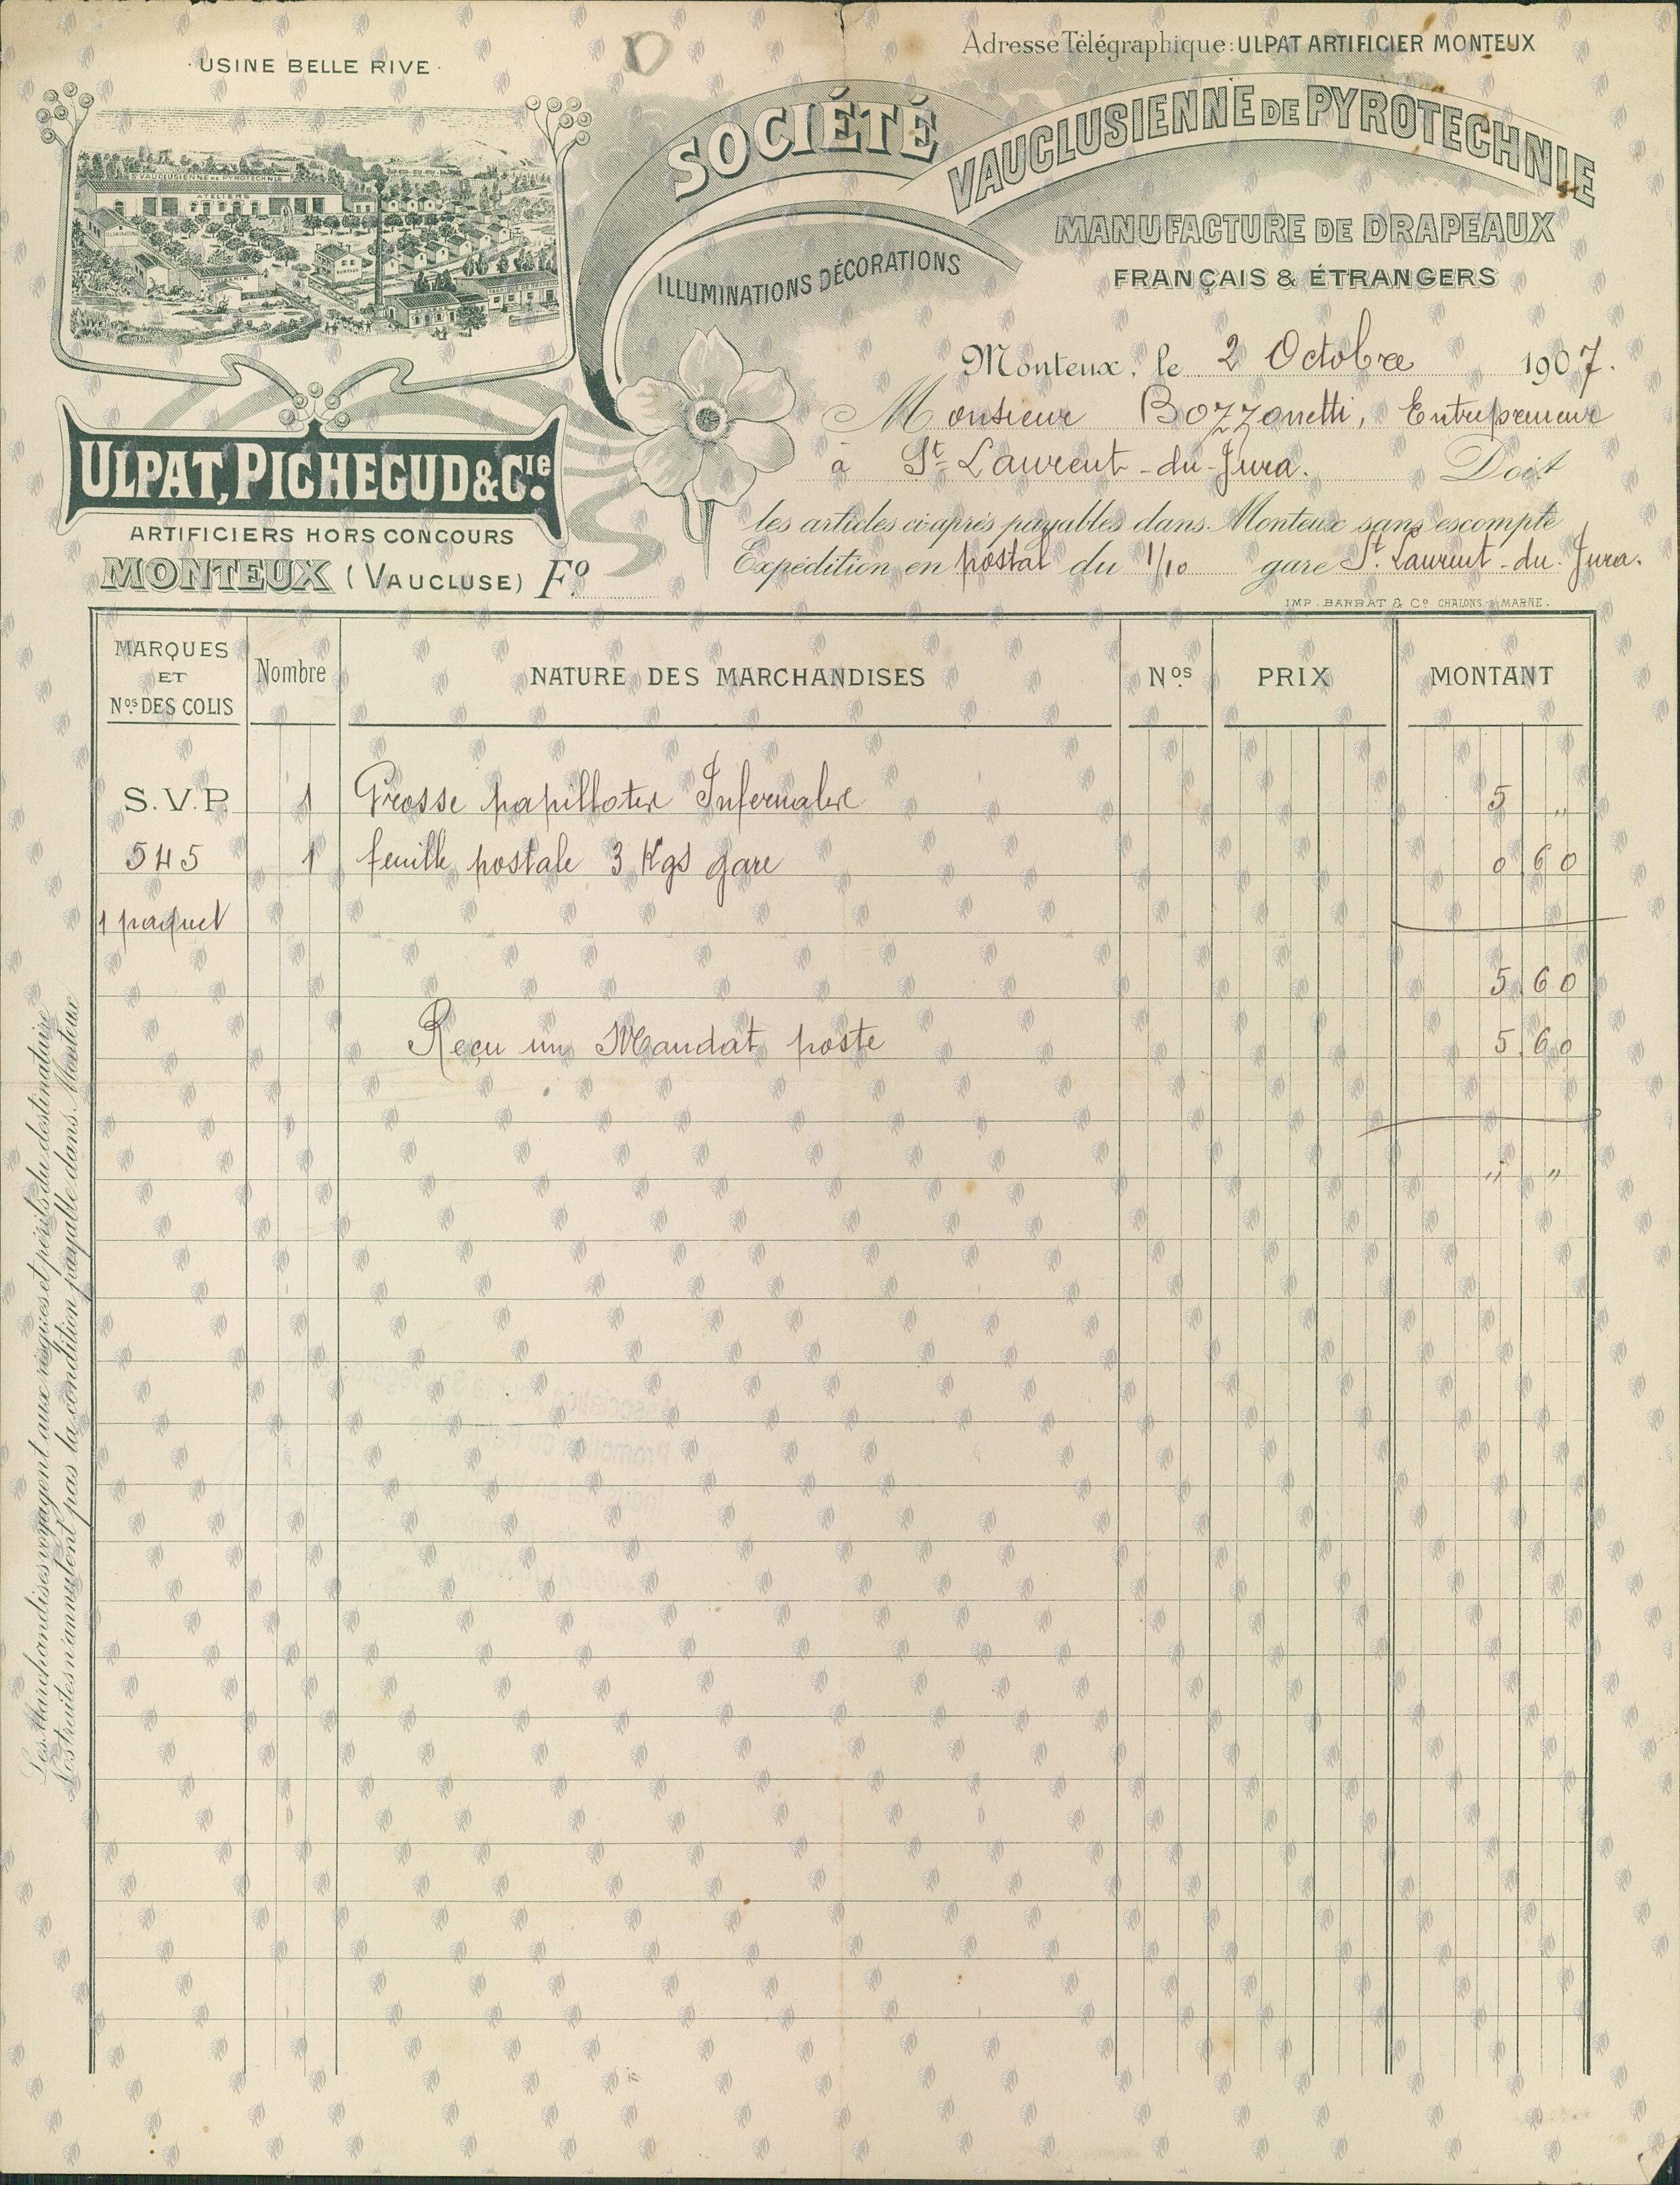 USINE BELLE RIVE
Adresse Télégraphique: ULPAT ARTIFICIER MONTEUX
Sté VAUCLUSIENNE DE PYROTECHNIE
ATELIERS
BUREAUX
SOCIÉTÉ
VAUCLUSIENNE DE PYROTECHNIE
ILLUMINATIONS DÉCORATIONS
MANUFACTURE DE DRAPEAUX
FRANÇAIS & ÉTRANGERS
Monteux, le 2 Octobre 1907.
Monsieur Bozzonetti, Entrepreneur
à St Laurent-du-Jura. Doit
les articles ci-après payables dans Monteux sans escompte
Expédition en postal du 1/10 gare St. Laurent-du-Jura.
ULPAT, PICHEGUD & Cie.
ARTIFICIERS HORS CONCOURS
MONTEUX (VAUCLUSE) Fo.
IMP. BARBAT & Co CHALONS s/ MARNE.
MARQUES ET Nos. DES COLIS Nombre NATURE DES MARCHANDISES Nos. PRIX MONTANT
S.V.P. 1 Grosse 5 "
545 1 feuille postale 3 Kgs gare 0,60
1 paquet
5,60
Reçu un Mandat poste 5,60
" "
Les Marchandises voyagent aux risques et périls du destinataire
Nos traites n'annulent pas la condition payable dans Monteux